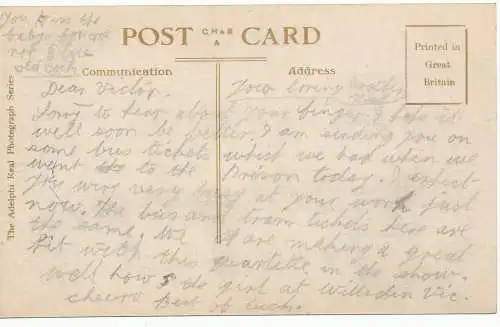 You was the
baby
not
old
POST CARD
C.M & S
A
Printed in
Great
Britain
Communication
Address
The Adelphi Real Photograph Series
Your loving brother
Dear Victor.
Sorry to hear about your finger I hope it
will soon be better. I am sending you on
some bus tickets whist we had when we
went to the Prison today. I
very busy at your work just
now. The bus and tram tickets here are
the same. We are making a great
hit with this quartette in the show.
Well how is the girl at Willesden Vic.
cheero Best of luck.